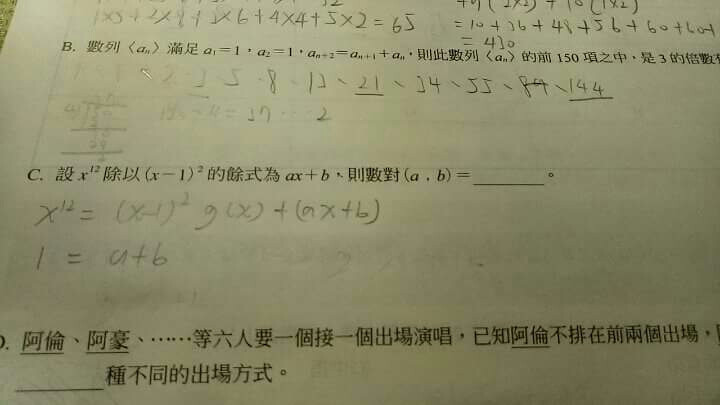 1×5+2×8+3×6+4×4+5×2=65
=10+36+48+56+60+60+
=430
B. 數列〈aₙ〉滿足 a₁=1，a₂=1，aₙ₊₂=aₙ₊₁+aₙ，則此數列〈aₙ〉的前 150 項之中，是 3 的倍數
2、3、5、8、13、21、34、55、89、144
C. 設 x¹² 除以 (x−1)² 的餘式為 ax+b、則數對 (a , b)=______。
x¹²=(x-1)² g(x)+(ax+b)
1 = a+b
阿倫、阿豪、……等六人要一個接一個出場演唱，已知阿倫不排在前兩個出場，
______種不同的出場方式。